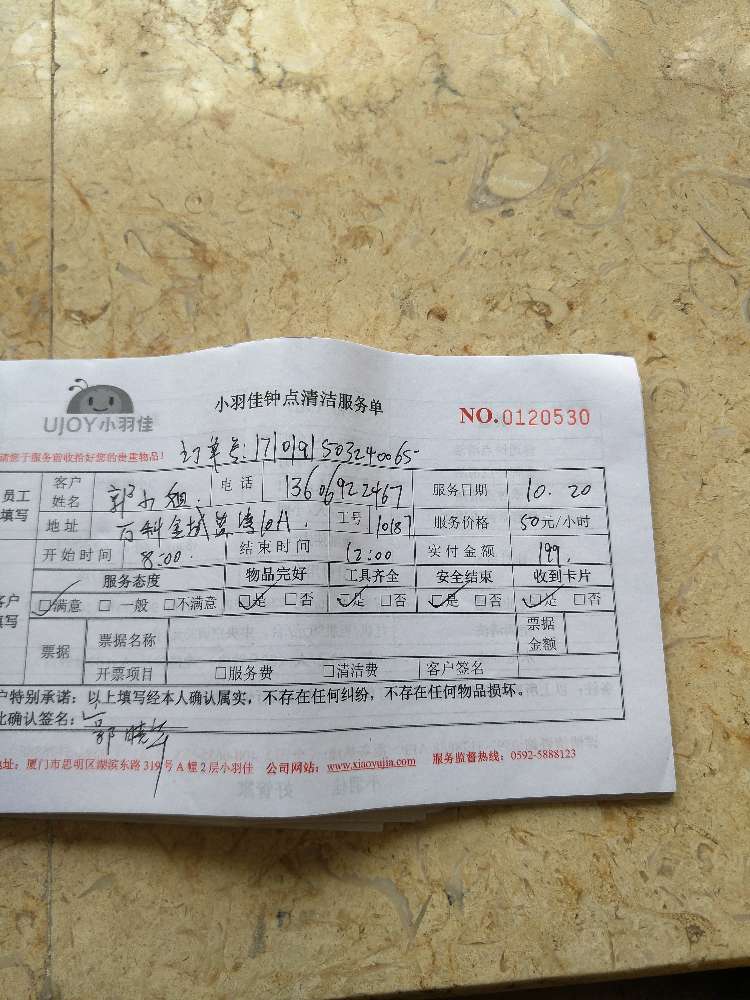 UJOY小羽佳
小羽佳钟点清洁服务单
NO.0120530
请您于服务前收拾好您的贵重物品!
订单号:1710191503240065
员工填写 客户姓名 郭小姐. 电话 13606922467 服务日期 10.20
地址 工号 10187 服务价格 50元/小时
开始时间 8:00. 结束时间 12:00 实付金额 199.
服务态度 物品完好 工具齐全 安全结束 收到卡片
客户填写 ☑满意 □一般 □不满意 ☑是 □否 ☑是 □否 ☑是 □否 ☑是 □否
票据 票据名称 票据金额
开票项目 □服务费 □清洁费 客户签名
户特别承诺:以上填写经本人确认属实,不存在任何纠纷,不存在任何物品损坏。
此确认签名: 郭
地址:厦门市思明区湖滨东路319号A幢2层小羽佳 公司网站:www.xiaoyujia.com 服务监督热线:0592-5888123